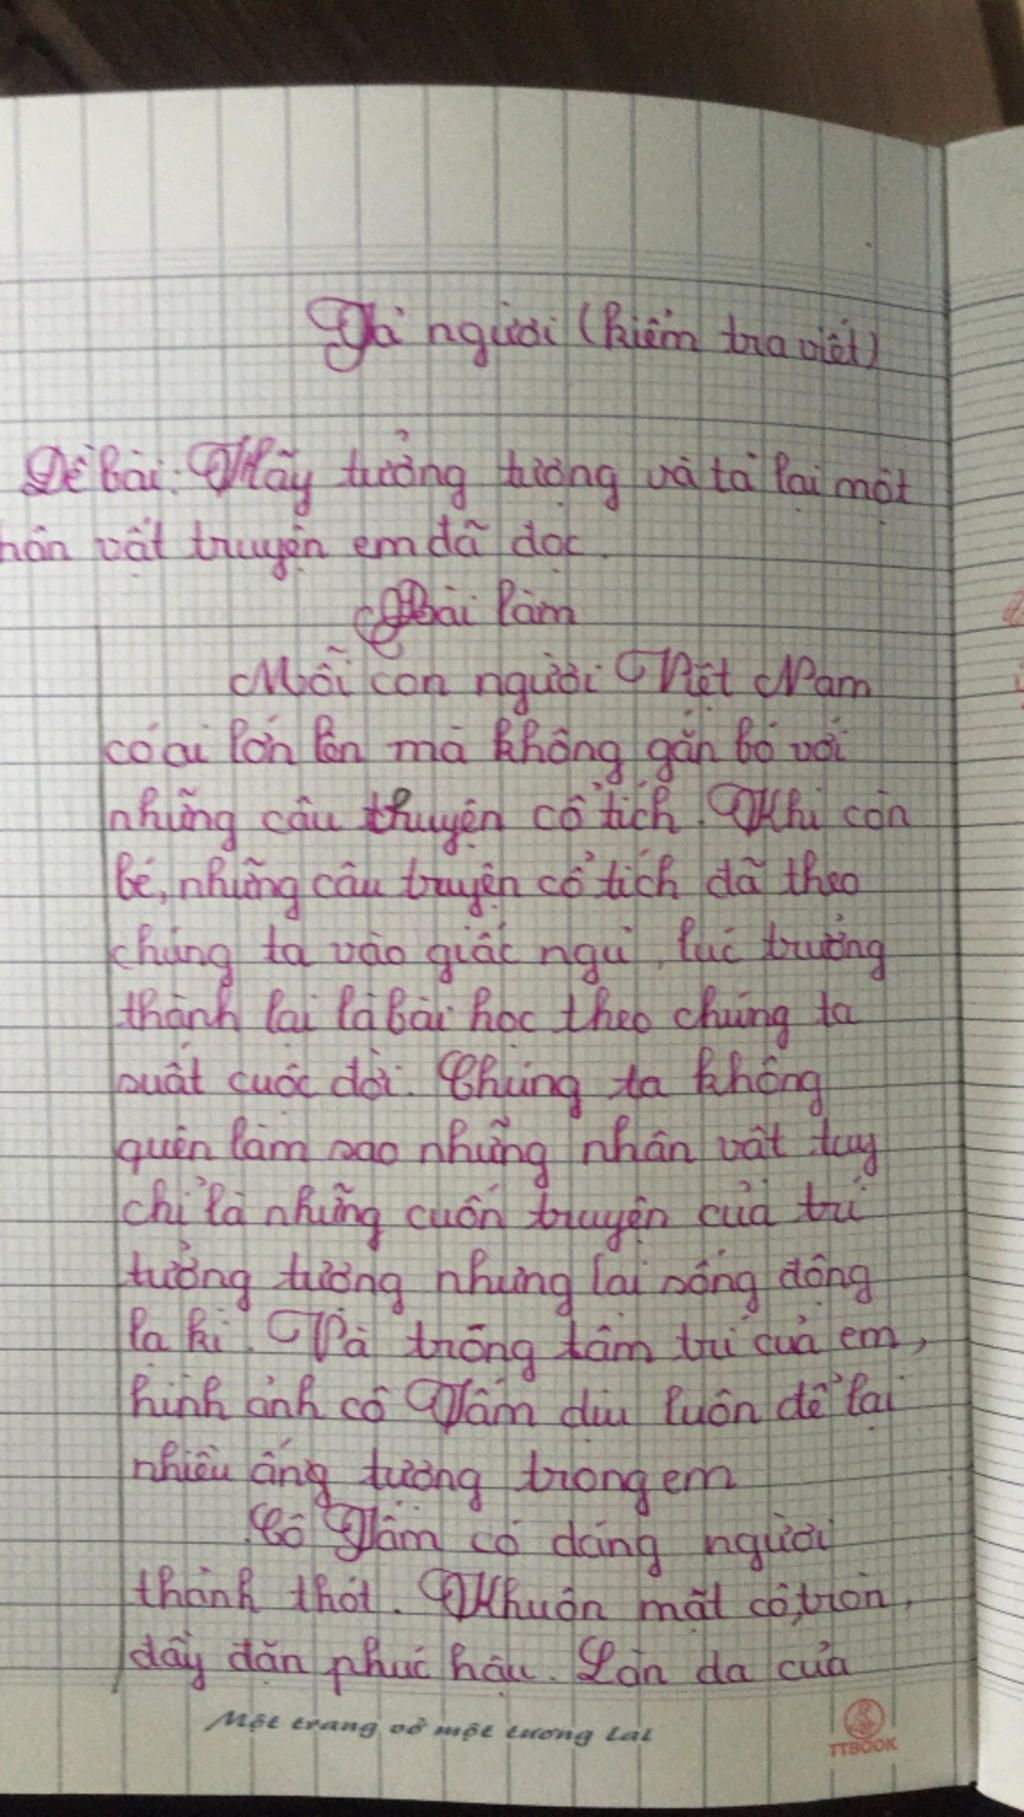 Tả người (kiểm tra viết)
Đề bài: Hãy tưởng tượng và tả lại một
nhân vật truyện em đã đọc.
Bài làm
Mỗi con người Việt Nam
có ai lớn lên mà không gắn bó với
những câu thuyện cổ tích. Khi còn
bé, những câu truyện cổ tích đã theo
chúng ta vào giấc ngủ, lúc trưởng
thành lại là bài học theo chúng ta
suốt cuộc đời. Chúng ta không
quên làm sao những nhân vật tuy
chỉ là những cuốn truyện của trí
tưởng tượng nhưng lại sống động
lạ kì. Và trong tâm trí của em,
hình ảnh cô Tấm dịu luôn để lại
nhiều ấng tượng trong em
Cô Tấm có dáng người
thanh thót. Khuôn mặt cô, tròn,
đầy đặn phúc hậu. Làn da của
Một trang vở một tương lai
TTBOOK